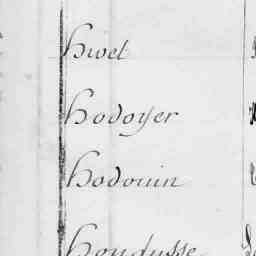 Huet
Hodoyer
Hodouin
Houdusse